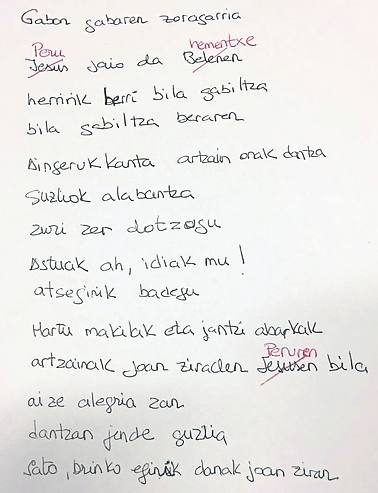 Gabon gabaren zoragarria
Peru hementxe
Jesus jaio da Belenen
herririk berri bila gabiltza
bila gabiltza beraren
Aingeruk kanta artzain onak dantza
Suztiok alabantza
zuri zer dotzogu
Astuak ah, idiak mu!
atseginik badegu
Hartu makilak eta jantzi abarkak
Peruren
artzainak joan ziraden Jesusen bila
aize alegria zan
dantzan jende guztia
salto, brinko eginik danak joan ziran